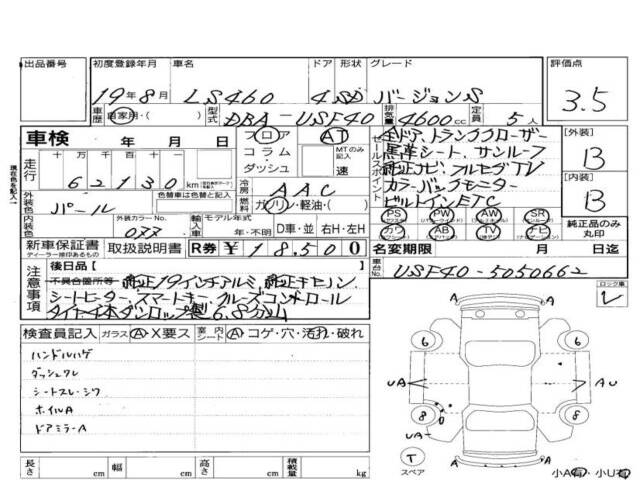 出品番号 初度登録年月 車名 ドア 形状 グレード 評価点
19年8月 LS460 4SD バージョンS 3.5
車歴 自家用・( ) 型式 DBA-USF40 排気量 4600cc 定員 5人
車検 年 月 日
フロア コラム・ ダッシュ AT MTのみ記入 速
走行 十万 万 千 百 十 一 km
62130
冷房 AAC
燃料 ガソリン・軽油・( )
セールスポイント
4ドア、トランククローザー
黒革シート、サンルーフ
純正ナビ・フルセグTV
カラーバックモニター
ビルトインETC
[外装] B
[内装] B
外装色 パール 色替車は色替と記入
内装色 外装カラーNo. 077
輸入車 モデル年式 年・不明 D車・並 右H・左H
PS パワステ PW パワーウインド AW SR サンルーフ
カワ AB TV ナビ
純正品のみ丸印
新車保証書 取扱説明書 R券 ¥18,500
ディーラー印押あるもの
名変期限 月 日迄
注意事項 後日品【 】
不具合箇所等 純正19インチアルミ、
シートヒーター、スマートキー、クルーズコントロール
タイヤ4本ダンロップ製6.8分山
車台No. USF40-5050662
ロック車 レ
検査員記入 ガラス A・X要ス 室内シート A・コゲ・穴・汚れ・破れ
ハンドルハゲ
ダッシュワレ
シートスレ・シワ
ホイルA
ドアミラーA
A A
6 6
UA AU
8 8
UA
T スペア A A
小A有・小U有
長さ cm 幅 cm 高さ cm 積載量 kg
現在色を記入